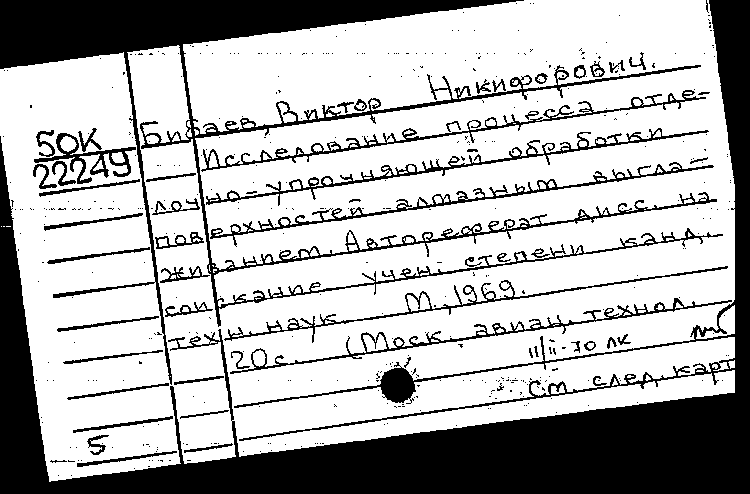 50К
22249
Бибаев, Виктор Никифорович.
Исследование процесса отде-
лочно-упрочняющей обработки
поверхностей алмазным выгла-
живанием. Автореферат дисс. на
соискание учен. степени канд.
техн. наук. М., 1969.
20с. (Моск. авиац. технол.
11/II-70 ЛК
См. след. карт
5